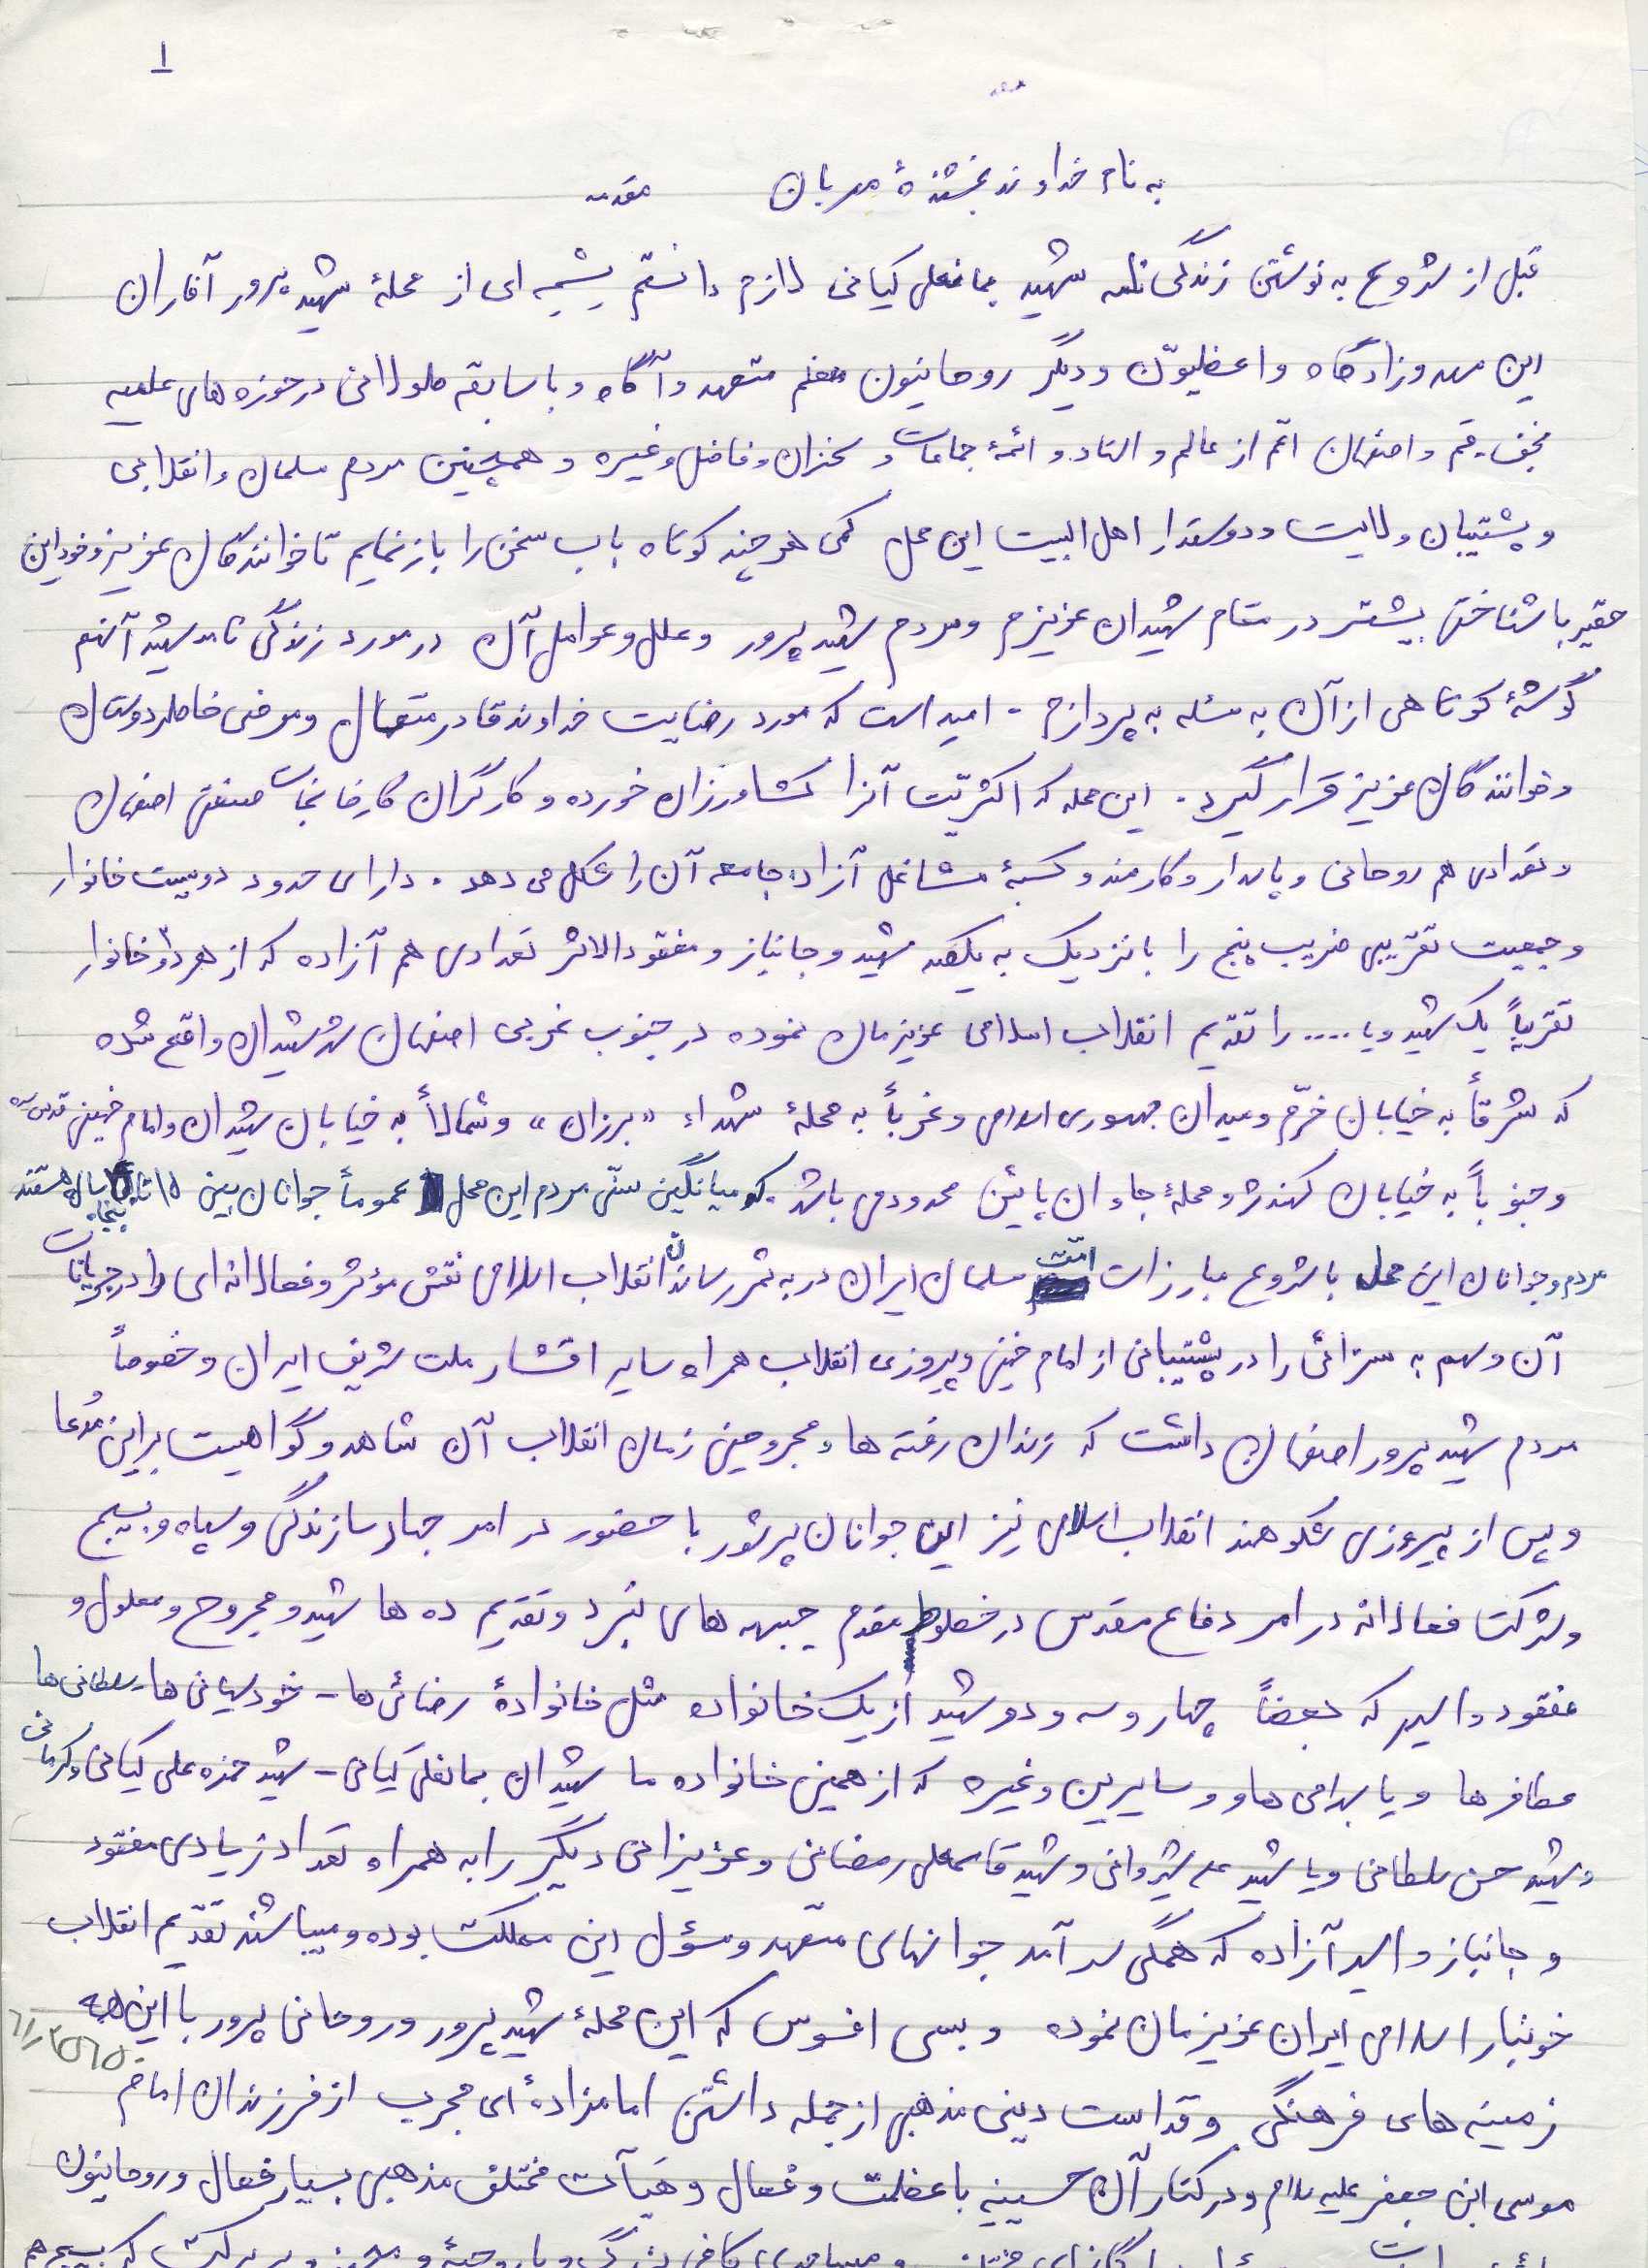 ۱
به نام خداوند بخشندهٔ مهربان مقدمه
قبل از شروع به نوشتن زندگی نامه شهید بمانعلی کیانی لازم دانستم پیشینه ای از محلهٔ شهید پرور آفاران
این مهد و زادگاه واعظیون و دیگر روحانیون معظم متعهد و آگاه و با سابقه طولانی در حوزه های علمیه
نجف - قم و اصفهان اعم از عالم و استاد و ائمهٔ جماعات و سخنران و فاضل و غیره و همچنین مردم مسلمان و انقلابی
و پشتیبان ولایت و دوستدار اهل البیت این محل کمی هر چند کوتاه باب سخن را باز نمایم تا خوانندگان عزیز و خود این
حقیر با شناختی بیشتر در مقام شهیدان عزیزم و مردم شهید پرور و علل و عوامل آن در مورد زندگی نامه شهید آنهم
گوشهٔ کوتاهی از آن به مسئله به پردازم - امید است که مورد رضایت خداوند قادر متعال و مرضی خاطر دوستان
و خوانندگان عزیز قرار گیرد . این محله که اکثریّت آنرا کشاورزان خورده و کارگران کارخانجات صنعتی اصفهان
و تعدادی هم روحانی و پاسدار و کارمند و کسبهٔ مشاغل آزاد جامعه آن را شکل می دهد . دارای حدود دویست خانوار
و جمعیت تقریبی ضریب پنج را با نزدیک به یکصد شهید و جانباز و مفقودالاثر تعدادی هم آزاده که از هر دو خانوار
تقریباً یک شهید و یا .... را تقدیم انقلاب اسلامی عزیزمان نموده در جنوب غربی اصفهان شهر شهیدان واقع شده
که شرقاً به خیابان خرّم و میدان جمهوری اسلامی و غرباً به محلهٔ شهداء «برزان» و شمالاً به خیابان شهیدان و امام خمینی قدس سره
و جنوباً به خیابان کهندژ و محلهٔ جاوان پائین محدود می باشد . که میانگین سنّی مردم این محل عموماً جوانان بین ۱۵ تا پنجاه سال هستند
مردم و جوانان این محل با شروع مبارزات امّت مسلمان ایران در به ثمر رساندن انقلاب اسلامی نقش مؤثر و فعالانه ای را در جریانات
آن و سهم به سزائی را در پشتیبانی از امام خمینی و پیروزی انقلاب همراه سایر اقشار ملت شریف ایران و خصوصاً
مردم شهید پرور اصفهان داشت که زندان رفته ها و مجروحین زمان انقلاب آن شاهد و گواهیست بر این مُدعا
و پس از پیروزی شکوهمند انقلاب اسلامی نیز این جوانان پرشور با حضور در امر جهاد سازندگی و سپاه و بسیج
و شرکت فعالانه در امر دفاع مقدس در خطوط مقدم جبهه های نبرد و تقدیم ده ها شهید و مجروح و معلول و
مفقود و اسیر که بعضاً چهار و سه و دو شهید از یک خانواده مثل خانوادهٔ رضائی ها - خودسیانی ها - سلطانی ها
عطافرها و یا بهرامی ها و و سایرین و غیره که از همین خانواده ما شهیدان بمانعلی کیانی - شهید حمزه علی کیانی و کرمانی
و شهید حسن سلطانی و یا شهید علی شیروانی و شهید قاسمعلی رمضانی و عزیزانی دیگر را به همراه تعداد زیادی مفقود
و جانباز و اسیر آزاده که همگی سرآمد جوانهای متعهد و مسؤل این مملکت بوده و میباشند تقدیم انقلاب
خونبار اسلامی ایران عزیزمان نموده و بسی افسوس که این محلهٔ شهید پرور و روحانی پرور با این همه
زمینه های فرهنگی و قداست دینی مذهبی از جمله داشتن امامزاده ای مجرب از فرزندان امام
موسی ابن جعفر علیه سلام و در کنار آن حسینیه با عظمت و فعال و هیآت مختلف مذهبی بسیار فعال و روحانیون